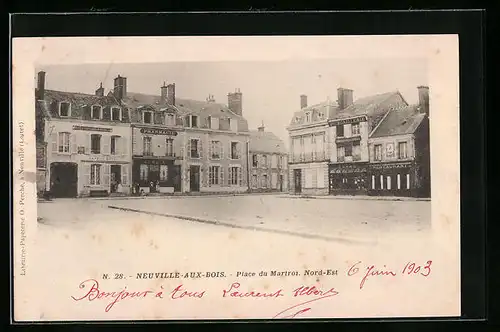 Librairie-Papeterie O. Perche, à Neuville (Loiret)
PHARMACIE
N. 28. - NEUVILLE-AUX-BOIS. - Place du Martroi. Nord-Est
6 juin 1903
Bonjour à tous Laurent Albert